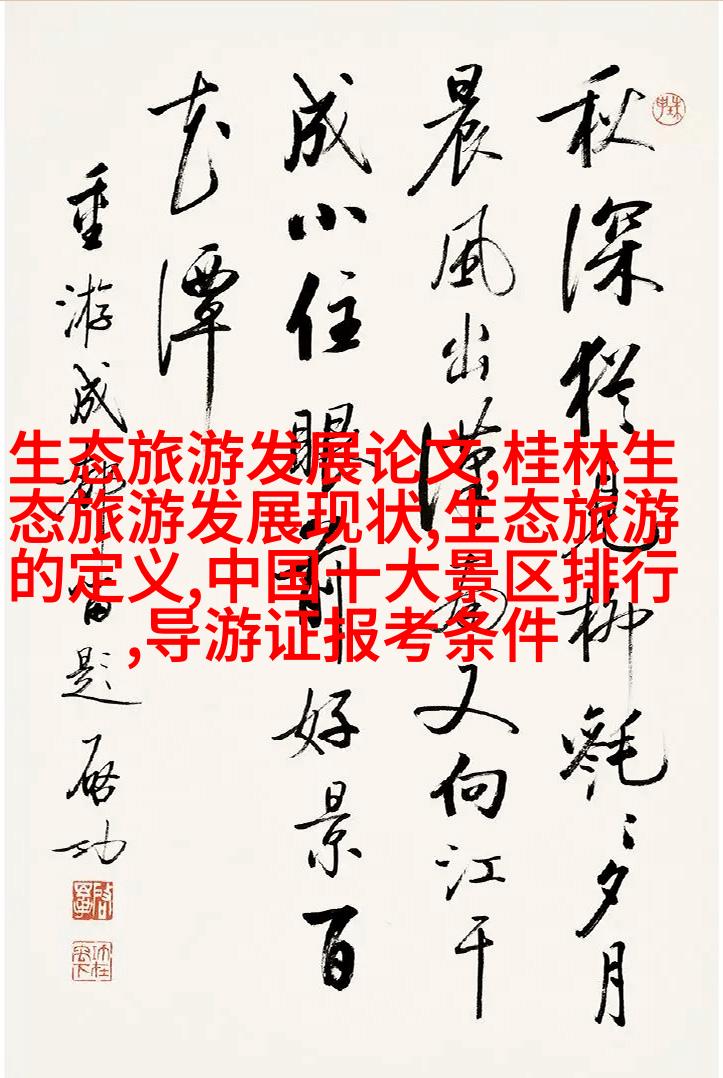 秋深猶見柳毿〻夕月
晨風出漢南又向江干
成小住眼前好景百
花潭
重游成都留題 啟功
生态旅游发展论文,桂林生
态旅游发展现状,生态旅游
的定义,中国十大景区排行
,导游证报考条件